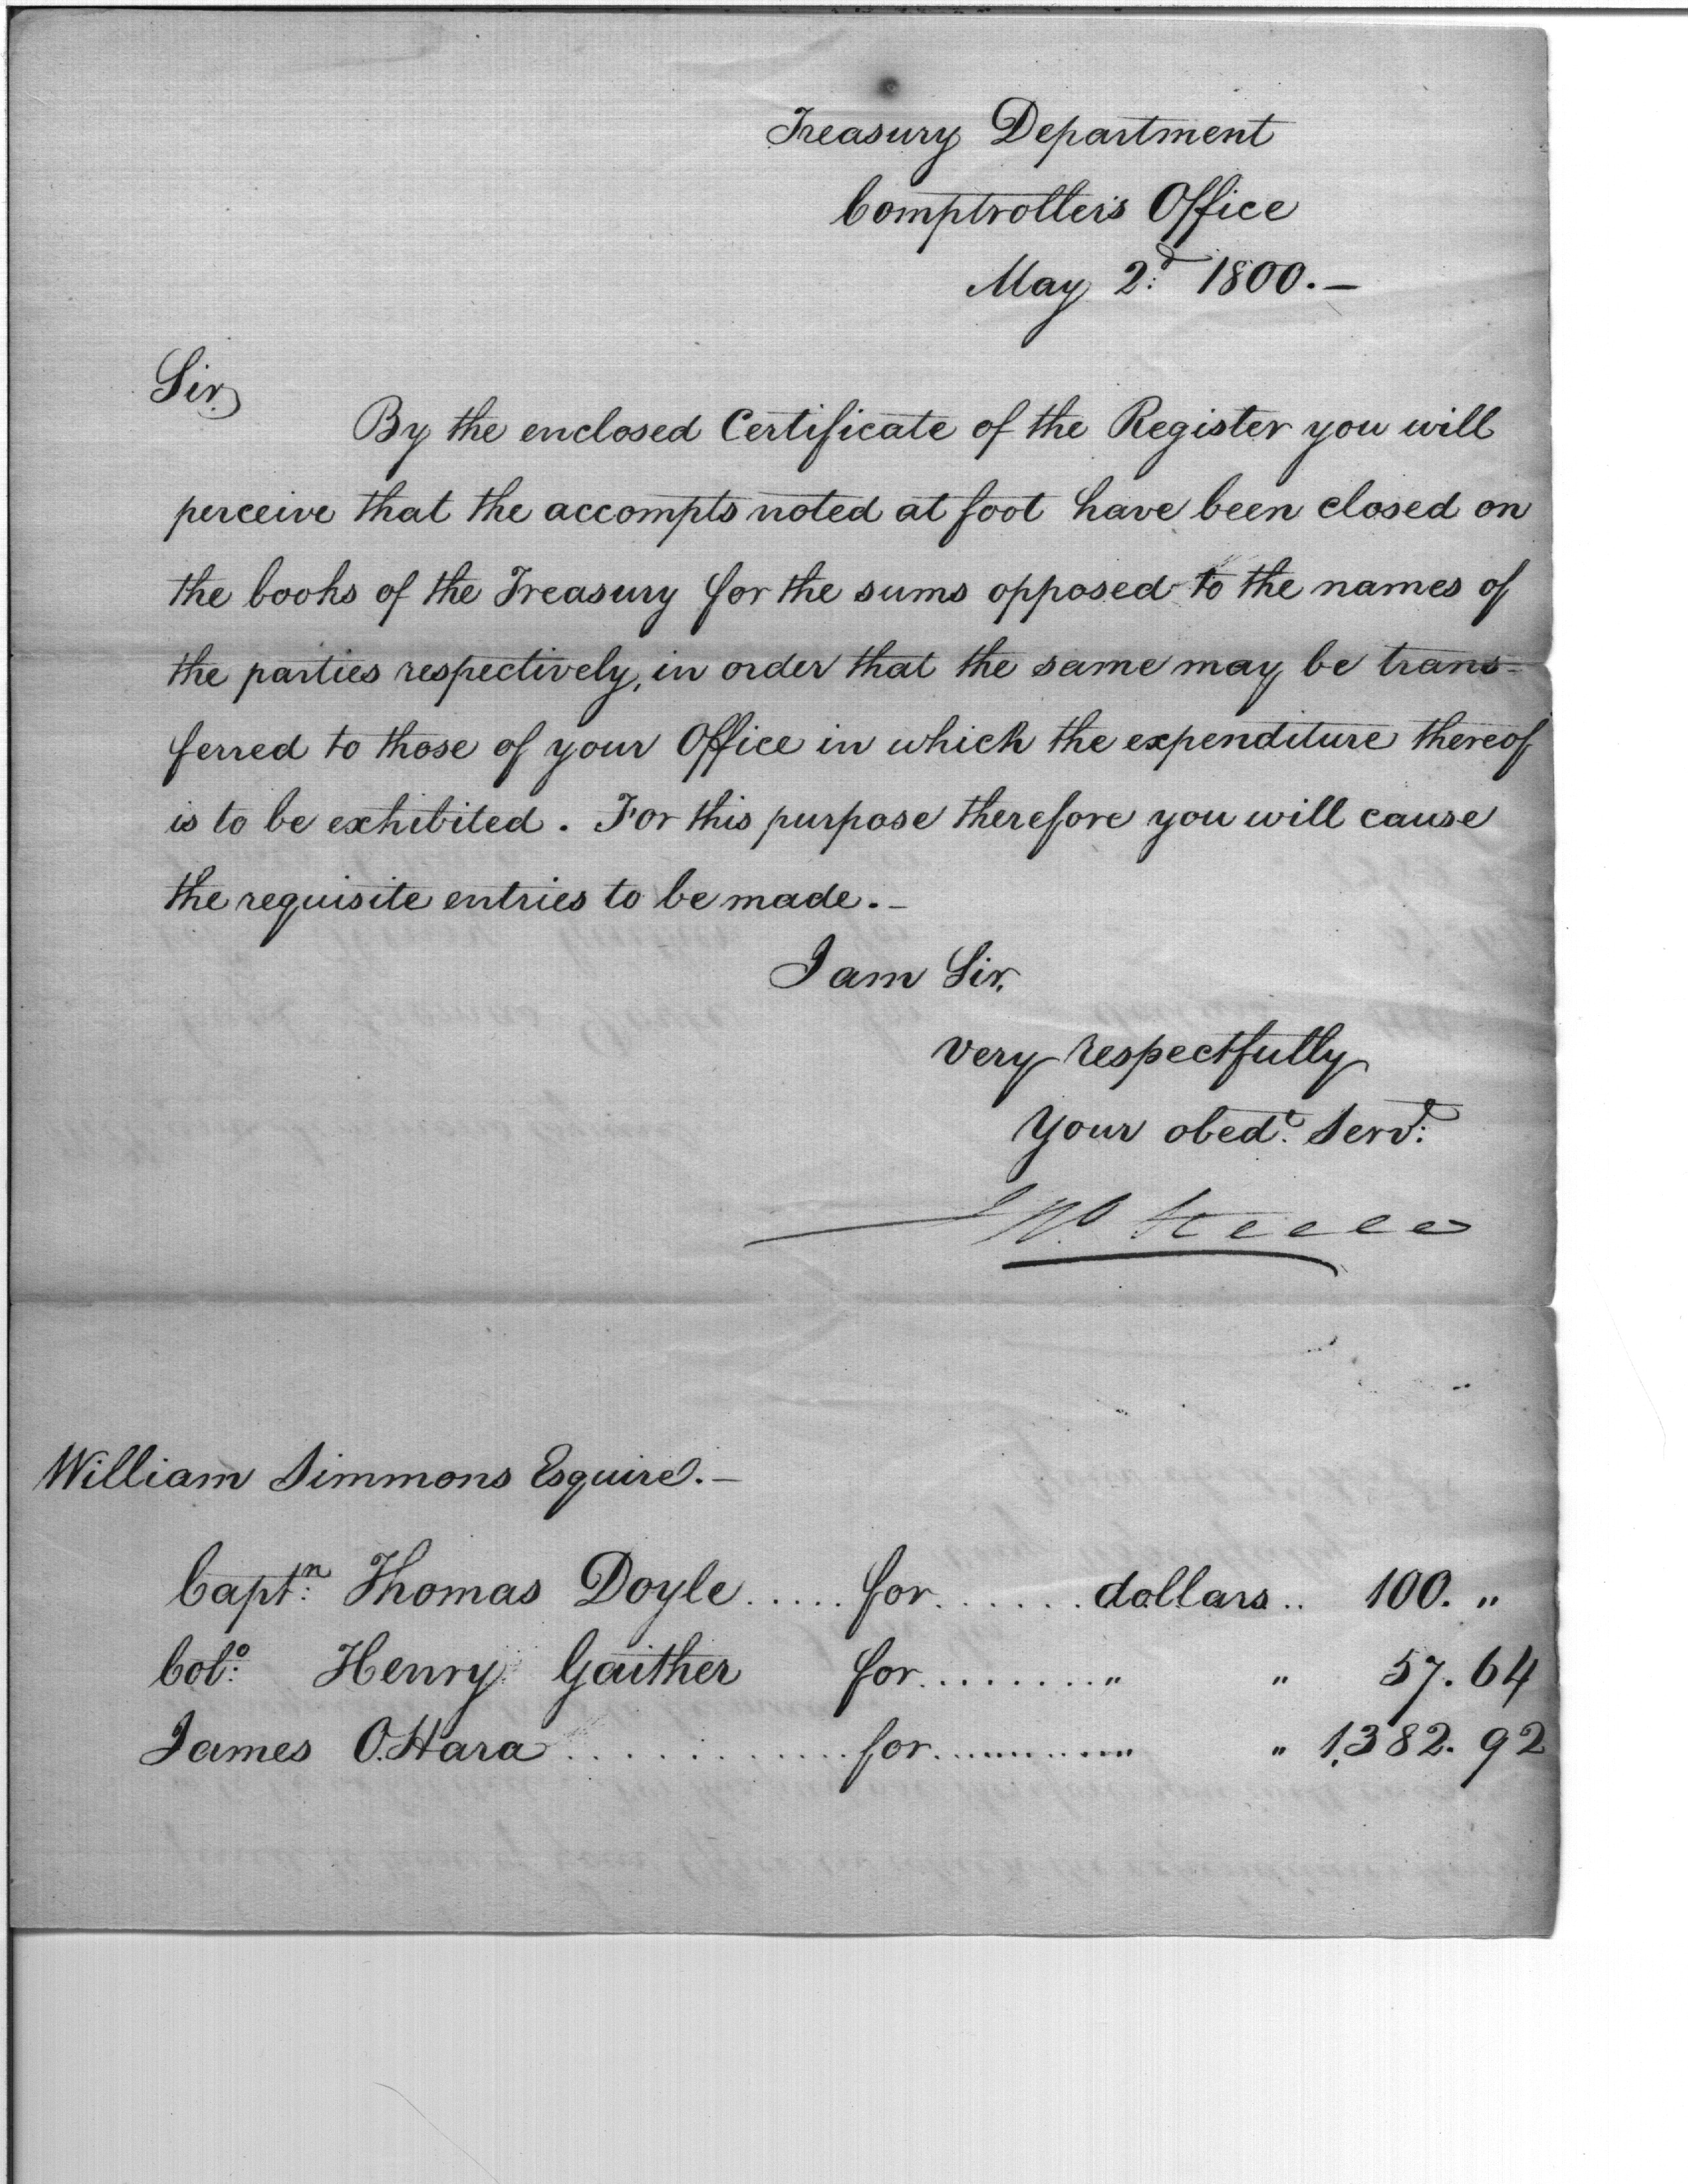 Treasury Department
Comptroller's Office
May 2d: 1800.—
Sir,
By the enclosed Certificate of the Register you will
perceive that the accompts noted at foot have been closed on
the books of the Treasury for the sums opposed to the names of
the parties respectively, in order that the same may be trans=
ferred to those of your Office in which the expenditure thereof
is to be exhibited. For this purpose therefore you will cause
the requisite entries to be made.—
I am Sir,
very respectfully
Your obedt. Servt:
Jno. Steele
William Simmons Esquire.—
Captn: Thomas Doyle ..... for ...... dollars .. 100. "
Colo: Henry Gaither for ........ " " 57. 64
James O.Hara ............. for .......... " " 1,382. 92